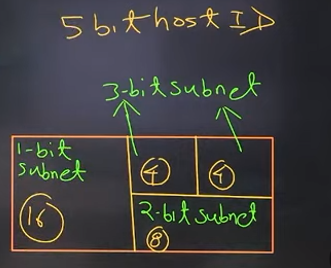 5 bit host ID
3-bit subnet
1-bit
subnet
4
4
16
2-bit subnet
8